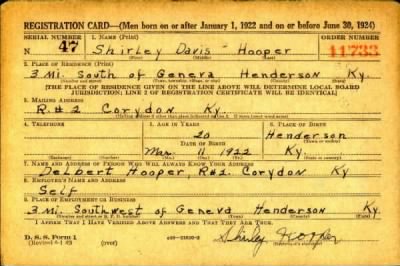 REGISTRATION CARD—(Men born on or after January 1, 1922 and on or before June 30, 1924)
SERIAL NUMBER 1. NAME (Print) ORDER NUMBER
N 47 Shirley Davis Hooper 11733
(First) (Middle) (Last)
2. PLACE OF RESIDENCE (Print)
3 Mi. South of Geneva Henderson Ky.
(Town, township, village, or city) (County) (State)
[THE PLACE OF RESIDENCE GIVEN ON THE LINE ABOVE WILL DETERMINE LOCAL BOARD
JURISDICTION; LINE 2 OF REGISTRATION CERTIFICATE WILL BE IDENTICAL]
3. MAILING ADDRESS
R#2 Corydon Ky.
4. TELEPHONE 5. AGE IN YEARS 6. PLACE OF BIRTH
20 Henderson
DATE OF BIRTH (Town or county)
Mar 11 1922 Ky
(Exchange) (Number) (Mo.) (Day) (Yr.) (State or country)
7. NAME AND ADDRESS OF PERSON WHO WILL ALWAYS KNOW YOUR ADDRESS
Delbert Hooper, R#2 Corydon Ky
8. EMPLOYER'S NAME AND ADDRESS
Self
9. PLACE OF EMPLOYMENT OR BUSINESS
3 Mi. Southwest of Geneva Henderson Ky
(Number and street or R. F. D. number) (Town) (County) (State)
I AFFIRM THAT I HAVE VERIFIED ABOVE ANSWERS AND THAT THEY ARE TRUE.
D. S. S. Form 1 Shirley Hooper
(over)